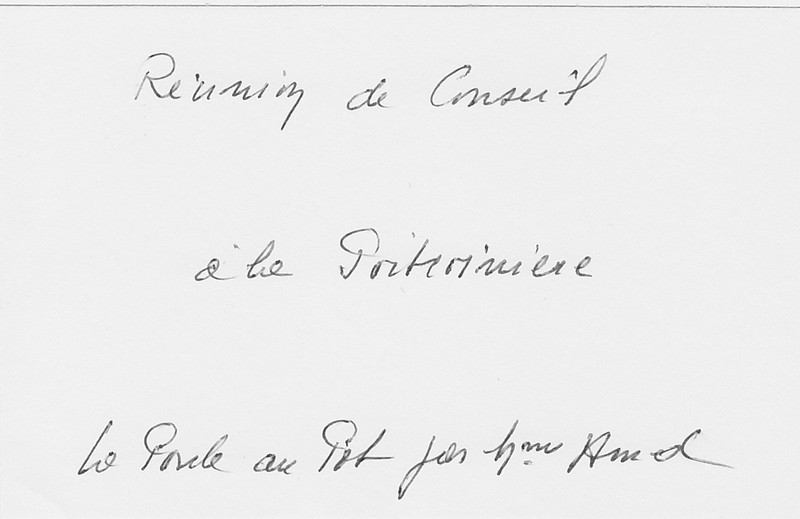 Réunion de Conseil
à la Poitevinière
La Poule au Pot par Mme